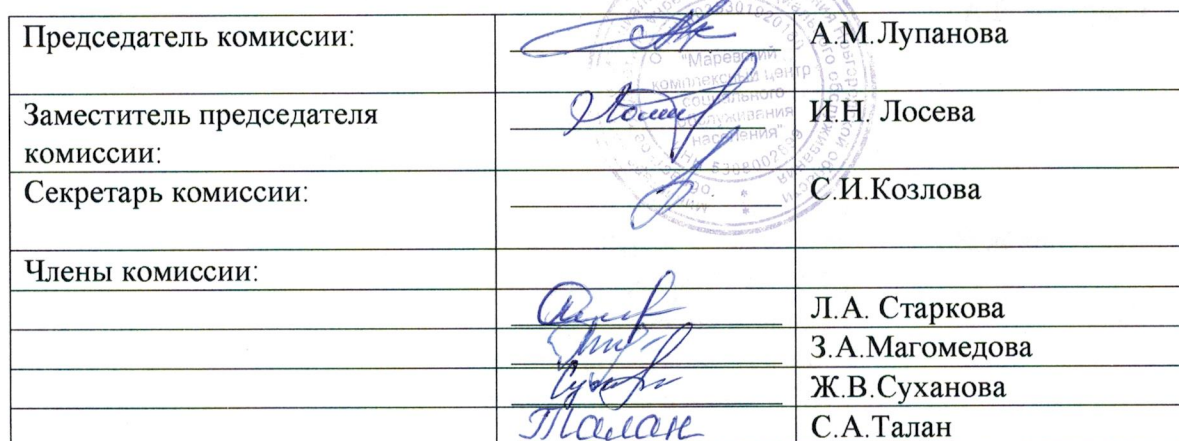 Председатель комиссии: А.М.Лупанова
Заместитель председателя И.Н. Лосева
комиссии:
Секретарь комиссии: С.И.Козлова
Члены комиссии:
Л.А. Старкова
З.А.Магомедова
Ж.В.Суханова
Талан С.А.Талан
"Маревский
комплексный центр
социального
обслуживания
населения"